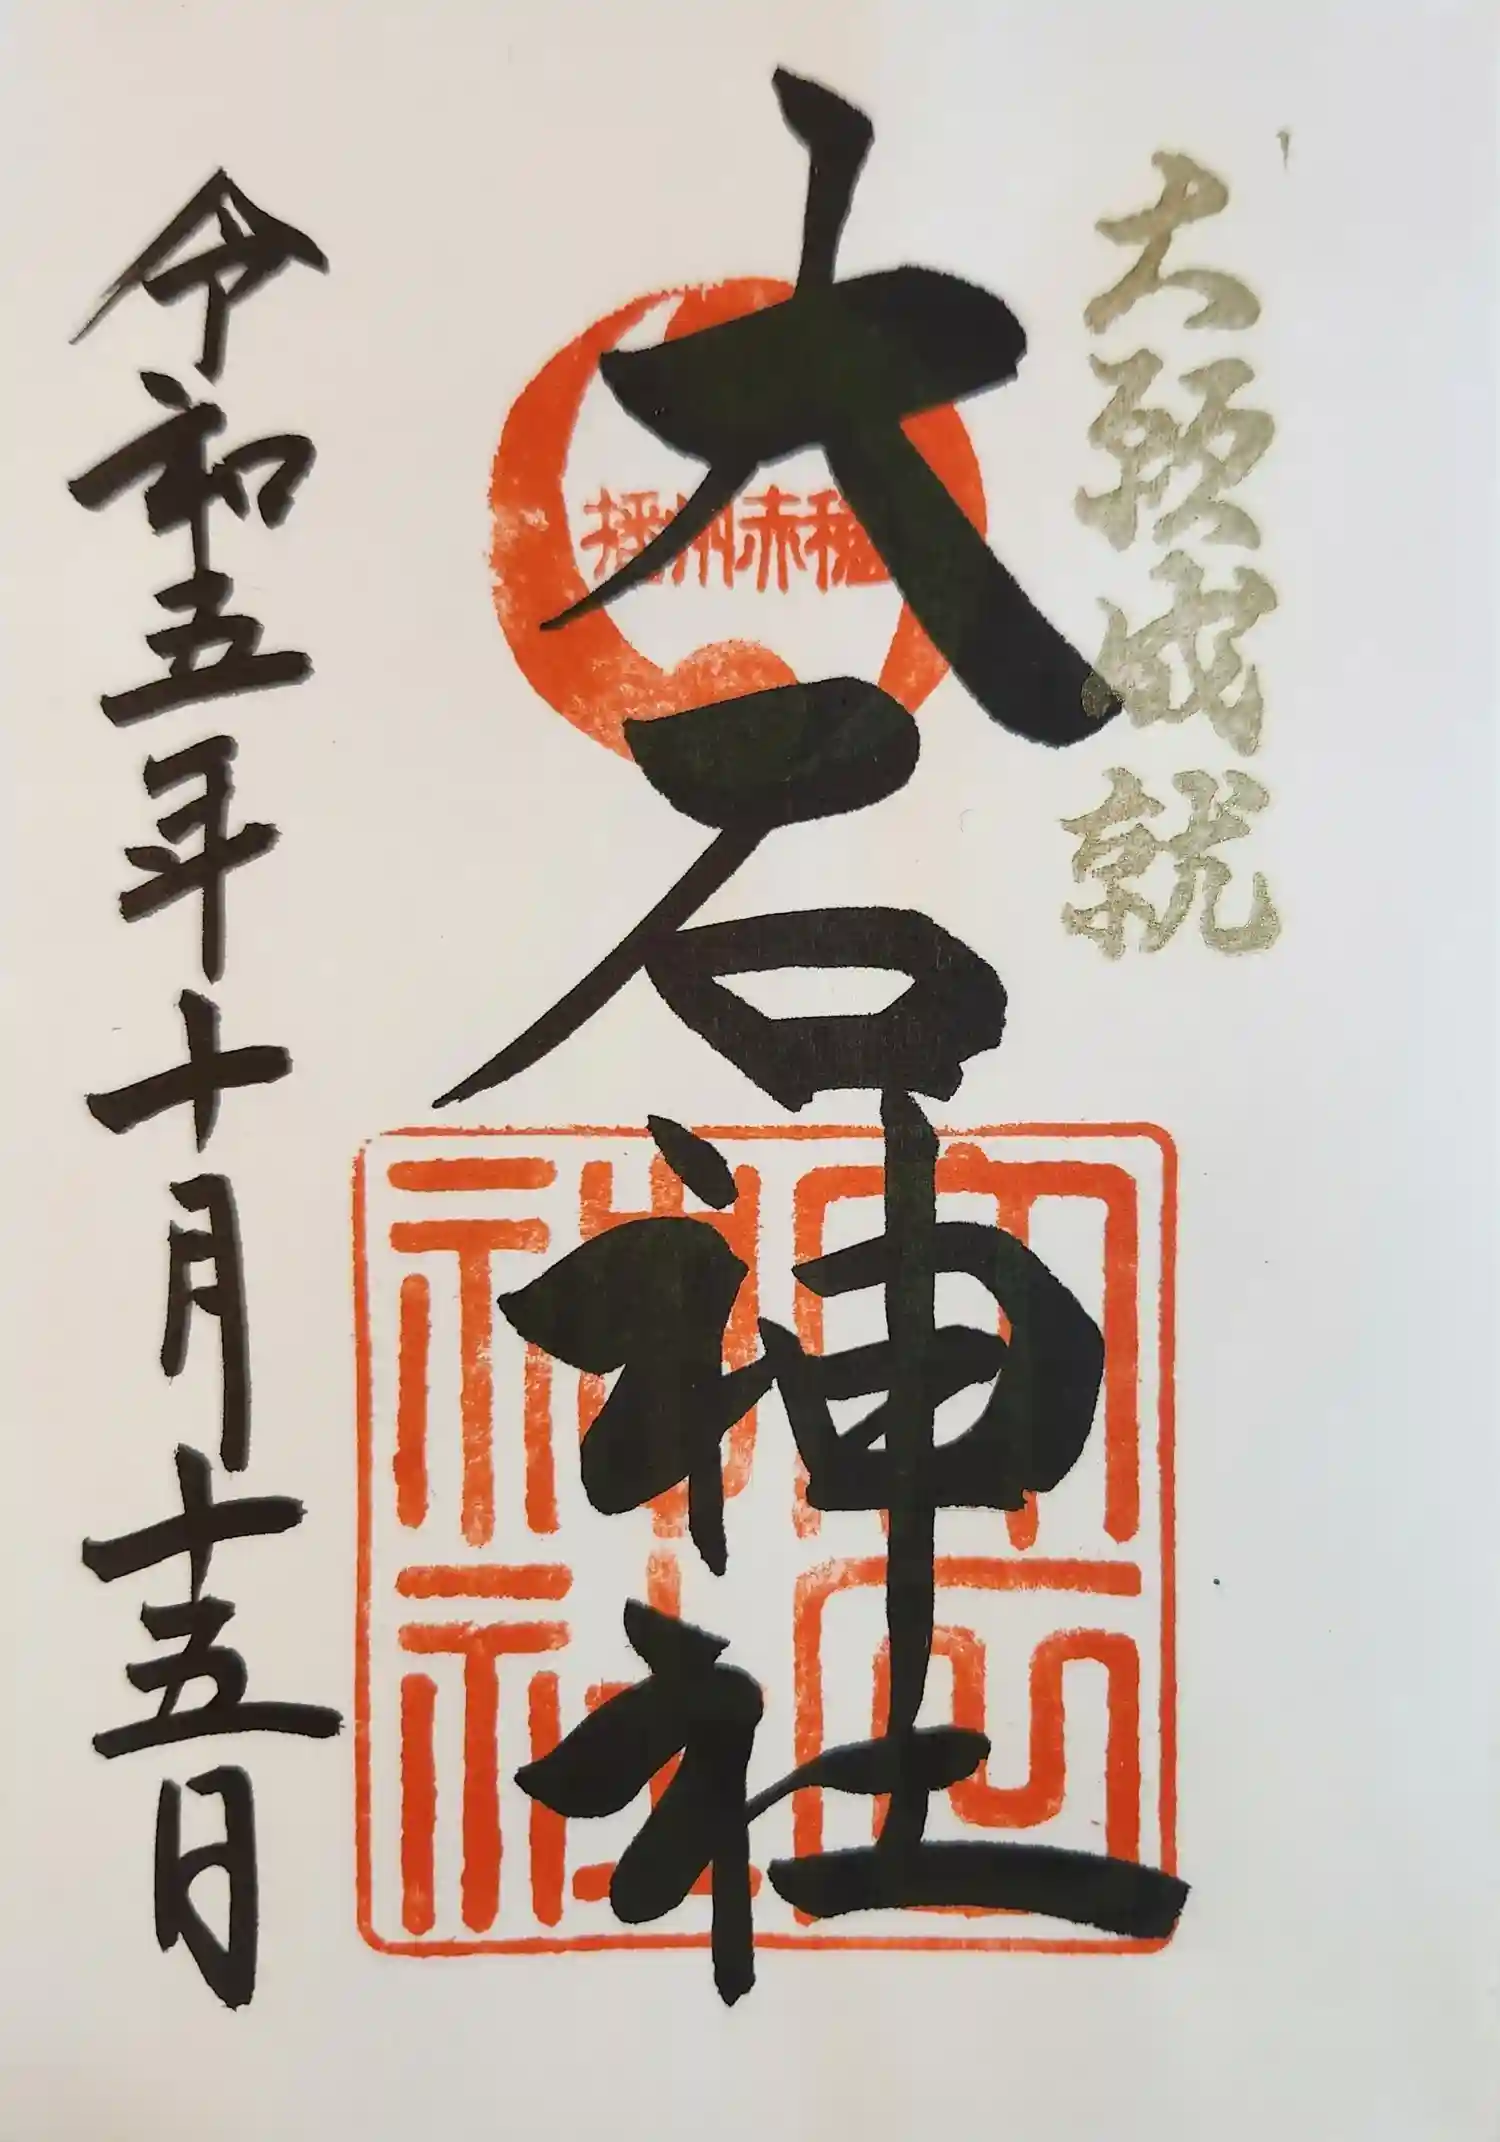 大願成就
播州赤穂
大石神社
大石神社
令和五年十月十五日